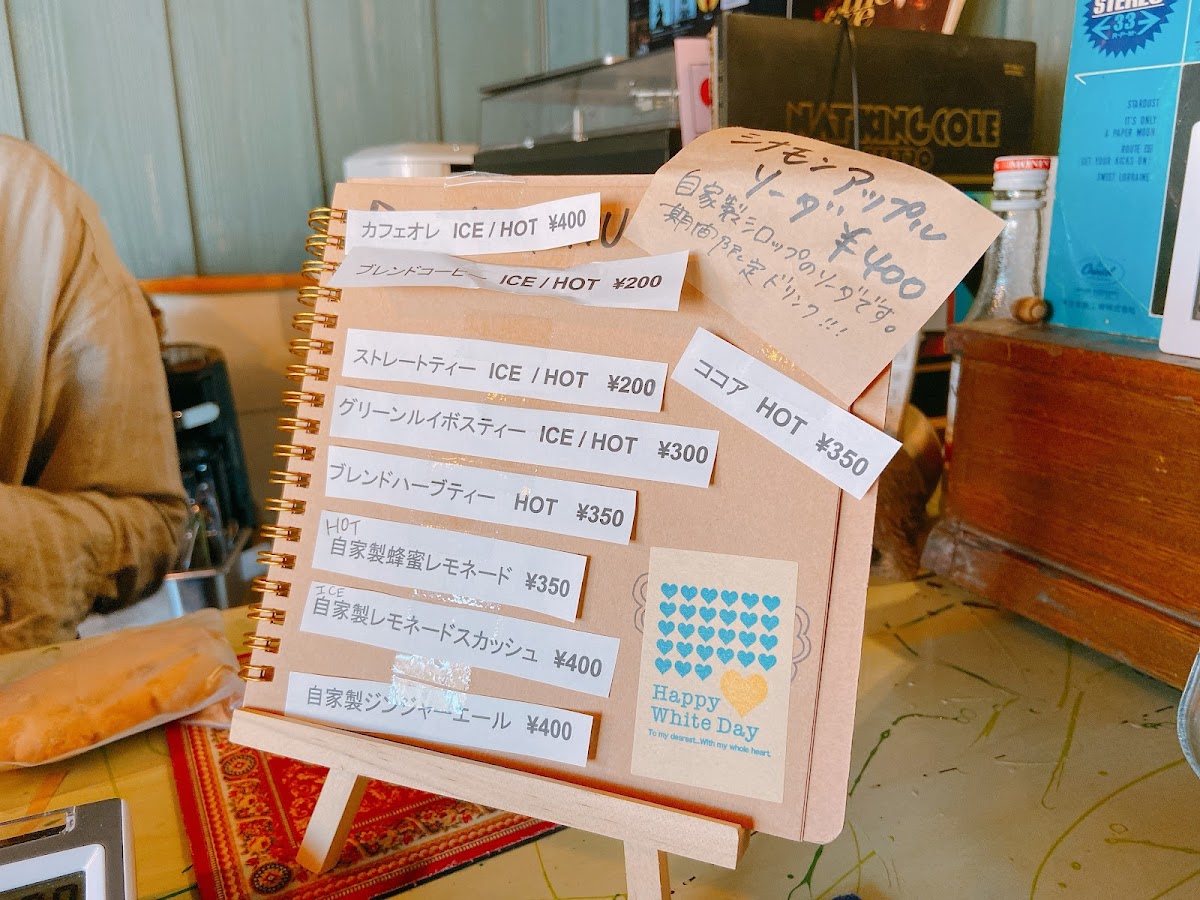 カフェオレ ICE / HOT ¥400
ブレンドコーヒー ICE / HOT ¥200
ストレートティー ICE / HOT ¥200
グリーンルイボスティー ICE / HOT ¥300
ブレンドハーブティー HOT ¥350
HOT
自家製蜂蜜レモネード ¥350
ICE
自家製レモネードスカッシュ ¥400
自家製ジンジャーエール ¥400
シナモンアップル
ソーダ ¥400
自家製シロップのソーダです。
期間限定ドリンク!!!
ココア HOT ¥350
Happy
White Day
To my dearest...With my whole heart.
NAT KING COLE
STEREO
33
STARDUST
IT'S ONLY
A PAPER MOON
ROUTE 66
GET YOUR KICKS ON
SWEET LORRAINE
Capitol